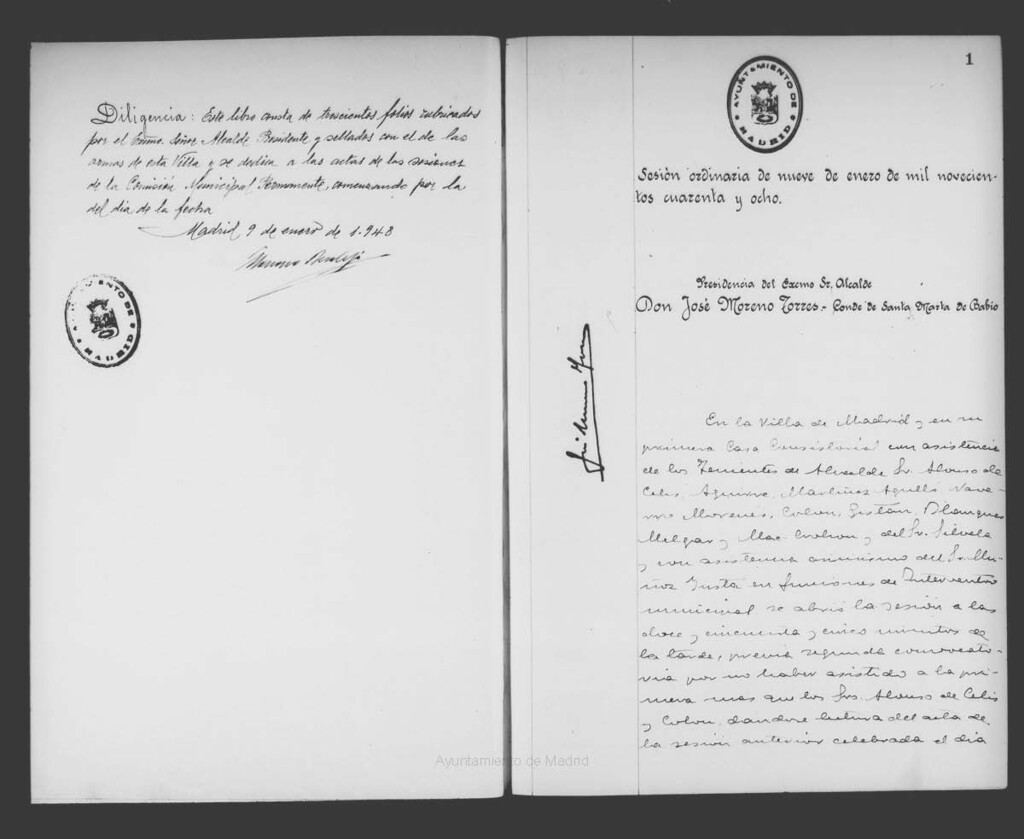 Diligencia: Este libro consta de trescientos folios rubricados
por el Excmo. Señor Alcalde Presidente y sellados con el de las
armas de esta Villa y se dedica a las actas de las sesiones
de la Comisión Municipal Permanente, comenzando por la
del dia de la fecha
Madrid 9 de enero de 1.948
AYUNTAMIENTO DE MADRID
1
AYUNTAMIENTO DE MADRID
Sesión ordinaria de nueve de enero de mil novecien-
tos cuarenta y ocho.
Presidencia del Excmo Sr. Alcalde
Don José Moreno Torres.- Conde de Santa Marta de Babio
En la Villa de Madrid y en su
primera Casa Consistorial con asistencia
de los Tenientes de Alcalde Sr. Alonso de
Celis, Aguirre, Martinez Agulló, Nava-
rro Morenés, Colon, Gistau, Blanquer
Melgar y Mac-Crohon y del Sr. Silvela
y con asistencia asimismo del Sr. Mu-
ñoz Justa en funciones de Interventor
municipal se abrió la sesión a las
doce y cincuenta y cinco minutos de
la tarde, previa segunda convocato-
ria por no haber asistido a la pri-
mera mas que los Sres. Alonso de Celis
y Colon, dandose lectura del acta de
la sesión anterior celebrada el dia
Ayuntamiento de Madrid